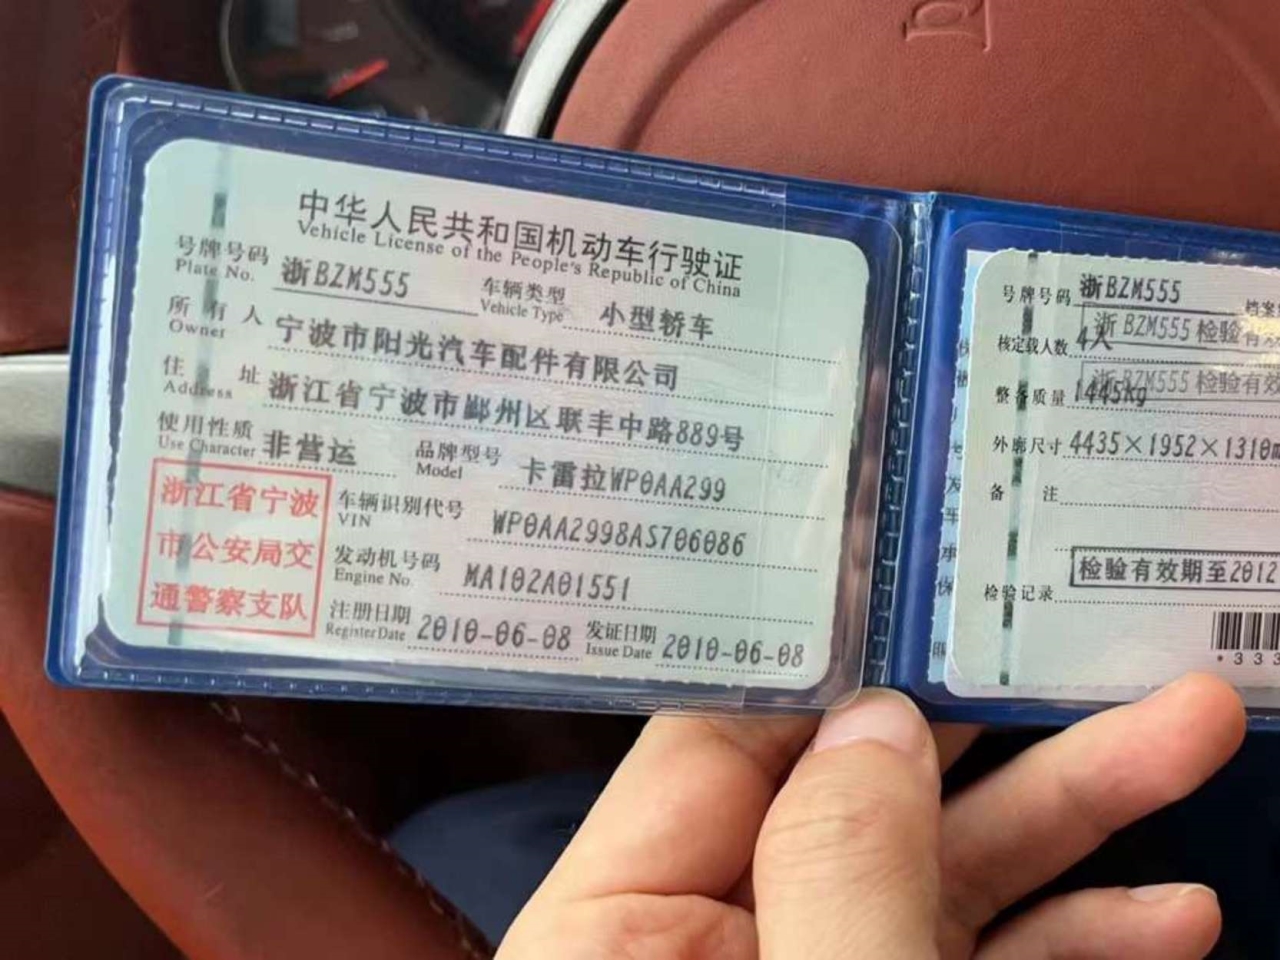 中华人民共和国机动车行驶证
Vehicle License of the People's Republic of China
号牌号码 浙BZM555 车辆类型 小型轿车
Plate No. Vehicle Type
所有人 宁波市阳光汽车配件有限公司
Owner
住址 浙江省宁波市鄞州区联丰中路889号
Address
使用性质 非营运 品牌型号 卡雷拉WP0AA299
Use Character Model
浙江省宁波
市公安局交
通警察支队
车辆识别代号 WP0AA2998AS706086
VIN
发动机号码 MA102A01551
Engine No.
注册日期 2010-06-08 发证日期 2010-06-08
Register Date Issue Date
号牌号码 浙BZM555 档案
浙BZM555检验有效
核定载人数 4人
浙BZM555检验有效
整备质量 1445Kg
外廓尺寸 4435×1952×1310
备注
检验有效期至2012
检验记录
*333